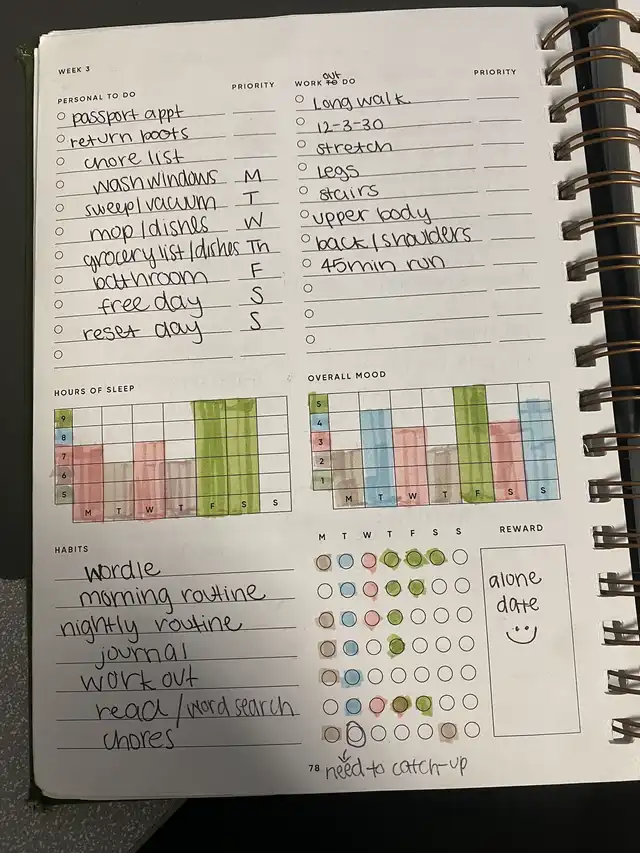 WEEK 3
PERSONAL TO DO PRIORITY
passport appt
return boots
chore list
wash windows M
sweep/vacuum T
mop/dishes W
grocery list/dishes Th
bathroom F
free day S
reset day S
out
WORK TO DO PRIORITY
Long walk
12-3-30
stretch
Legs
stairs
upper body
back/shoulders
45min run
HOURS OF SLEEP
9
8
7
6
5
M T W T F S S
OVERALL MOOD
5
4
3
2
1
M T W T F S S
HABITS
wordle
morning routine
nightly routine
journal
work out
read/word search
chores
M T W T F S S
REWARD
alone
date
78 need to catch-up